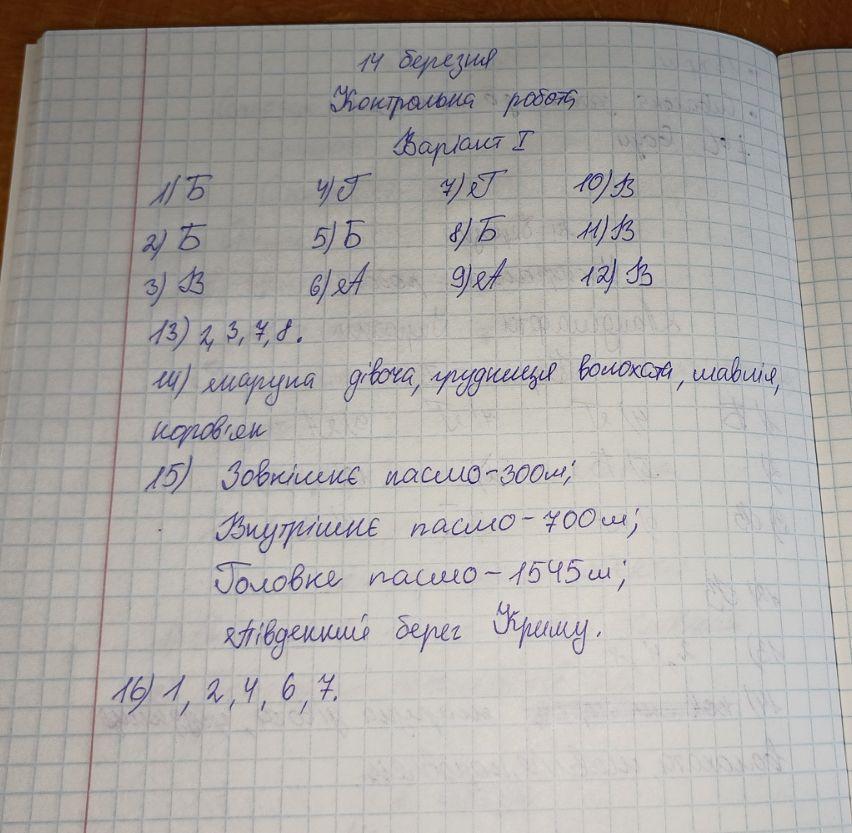 14 березня
Контрольна робота
Варіант I
1) Б 4) Г 7) Г 10) В
2) Б 5) Б 8) Б 11) В
3) В 6) А 9) А 12) В
13) 2, 3, 7, 8.
14) маруна дівоча, грудниця волохата, шавлія,
коров'як
15) Зовнішнє пасмо - 300м;
Внутрішнє пасмо - 700м;
Головне пасмо - 1545м;
Південний берег Криму.
16) 1, 2, 4, 6, 7.